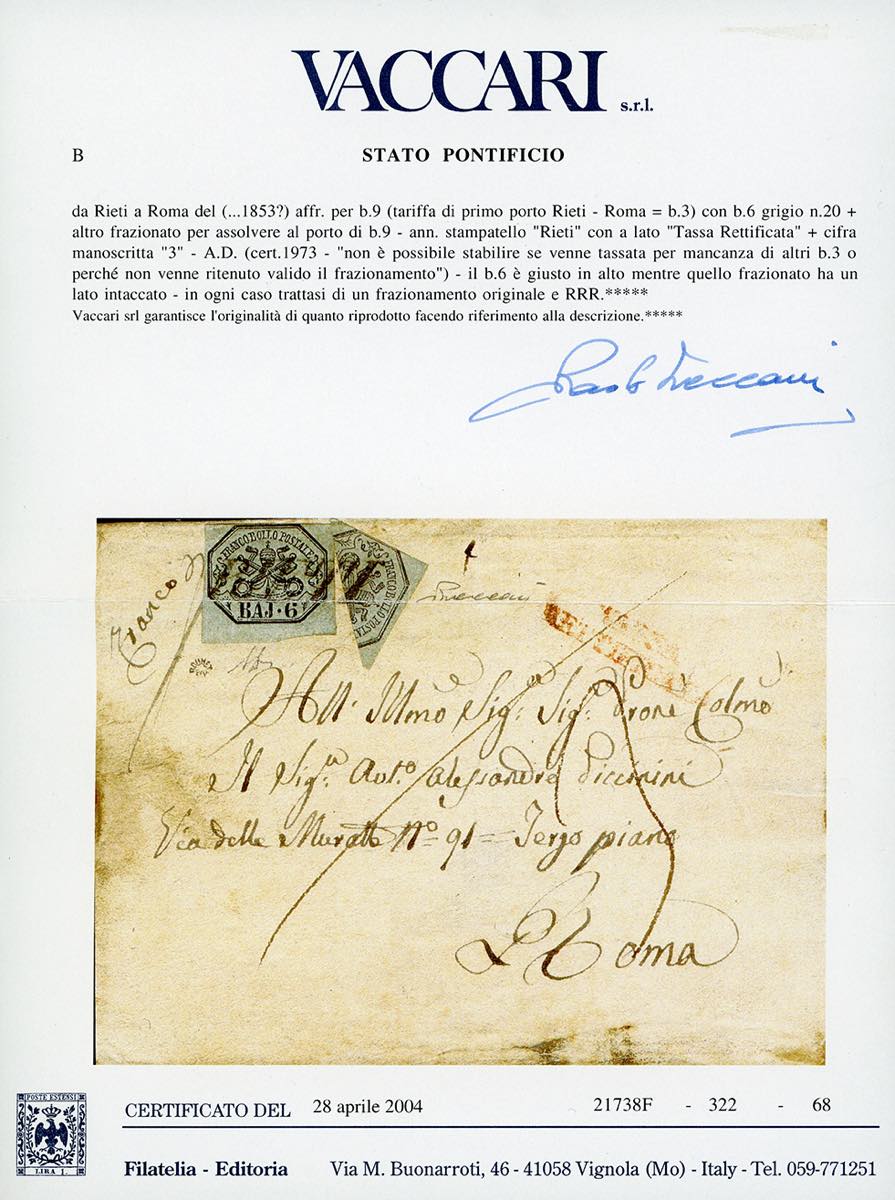 VACCARI s.r.l.
B STATO PONTIFICIO
da Rieti a Roma del (...1853?) affr. per b.9 (tariffa di primo porto Rieti - Roma = b.3) con b.6 grigio n.20 +
altro frazionato per assolvere al porto di b.9 - ann. stampatello "Rieti" con a lato "Tassa Rettificata" + cifra
manoscritta "3" - A.D. (cert.1973 - "non è possibile stabilire se venne tassata per mancanza di altri b.3 o
perché non venne ritenuto valido il frazionamento") - il b.6 è giusto in alto mentre quello frazionato ha un
lato intaccato - in ogni caso trattasi di un frazionamento originale e RRR.*****
Vaccari srl garantisce l'originalità di quanto riprodotto facendo riferimento alla descrizione.*****
Franco
FRANCO BOLLO POSTALE
BAJ·6
FRANCO BOLLO POSTA
All' Sig: Sig:
Il Sig:
Via delle Muratte Nº 91 = Terzo piano
Roma
POSTE ESTENSI
LIRA 1.
CERTIFICATO DEL 28 aprile 2004 21738F - 322 - 68
Filatelia - Editoria Via M. Buonarroti, 46 - 41058 Vignola (Mo) - Italy - Tel. 059-771251